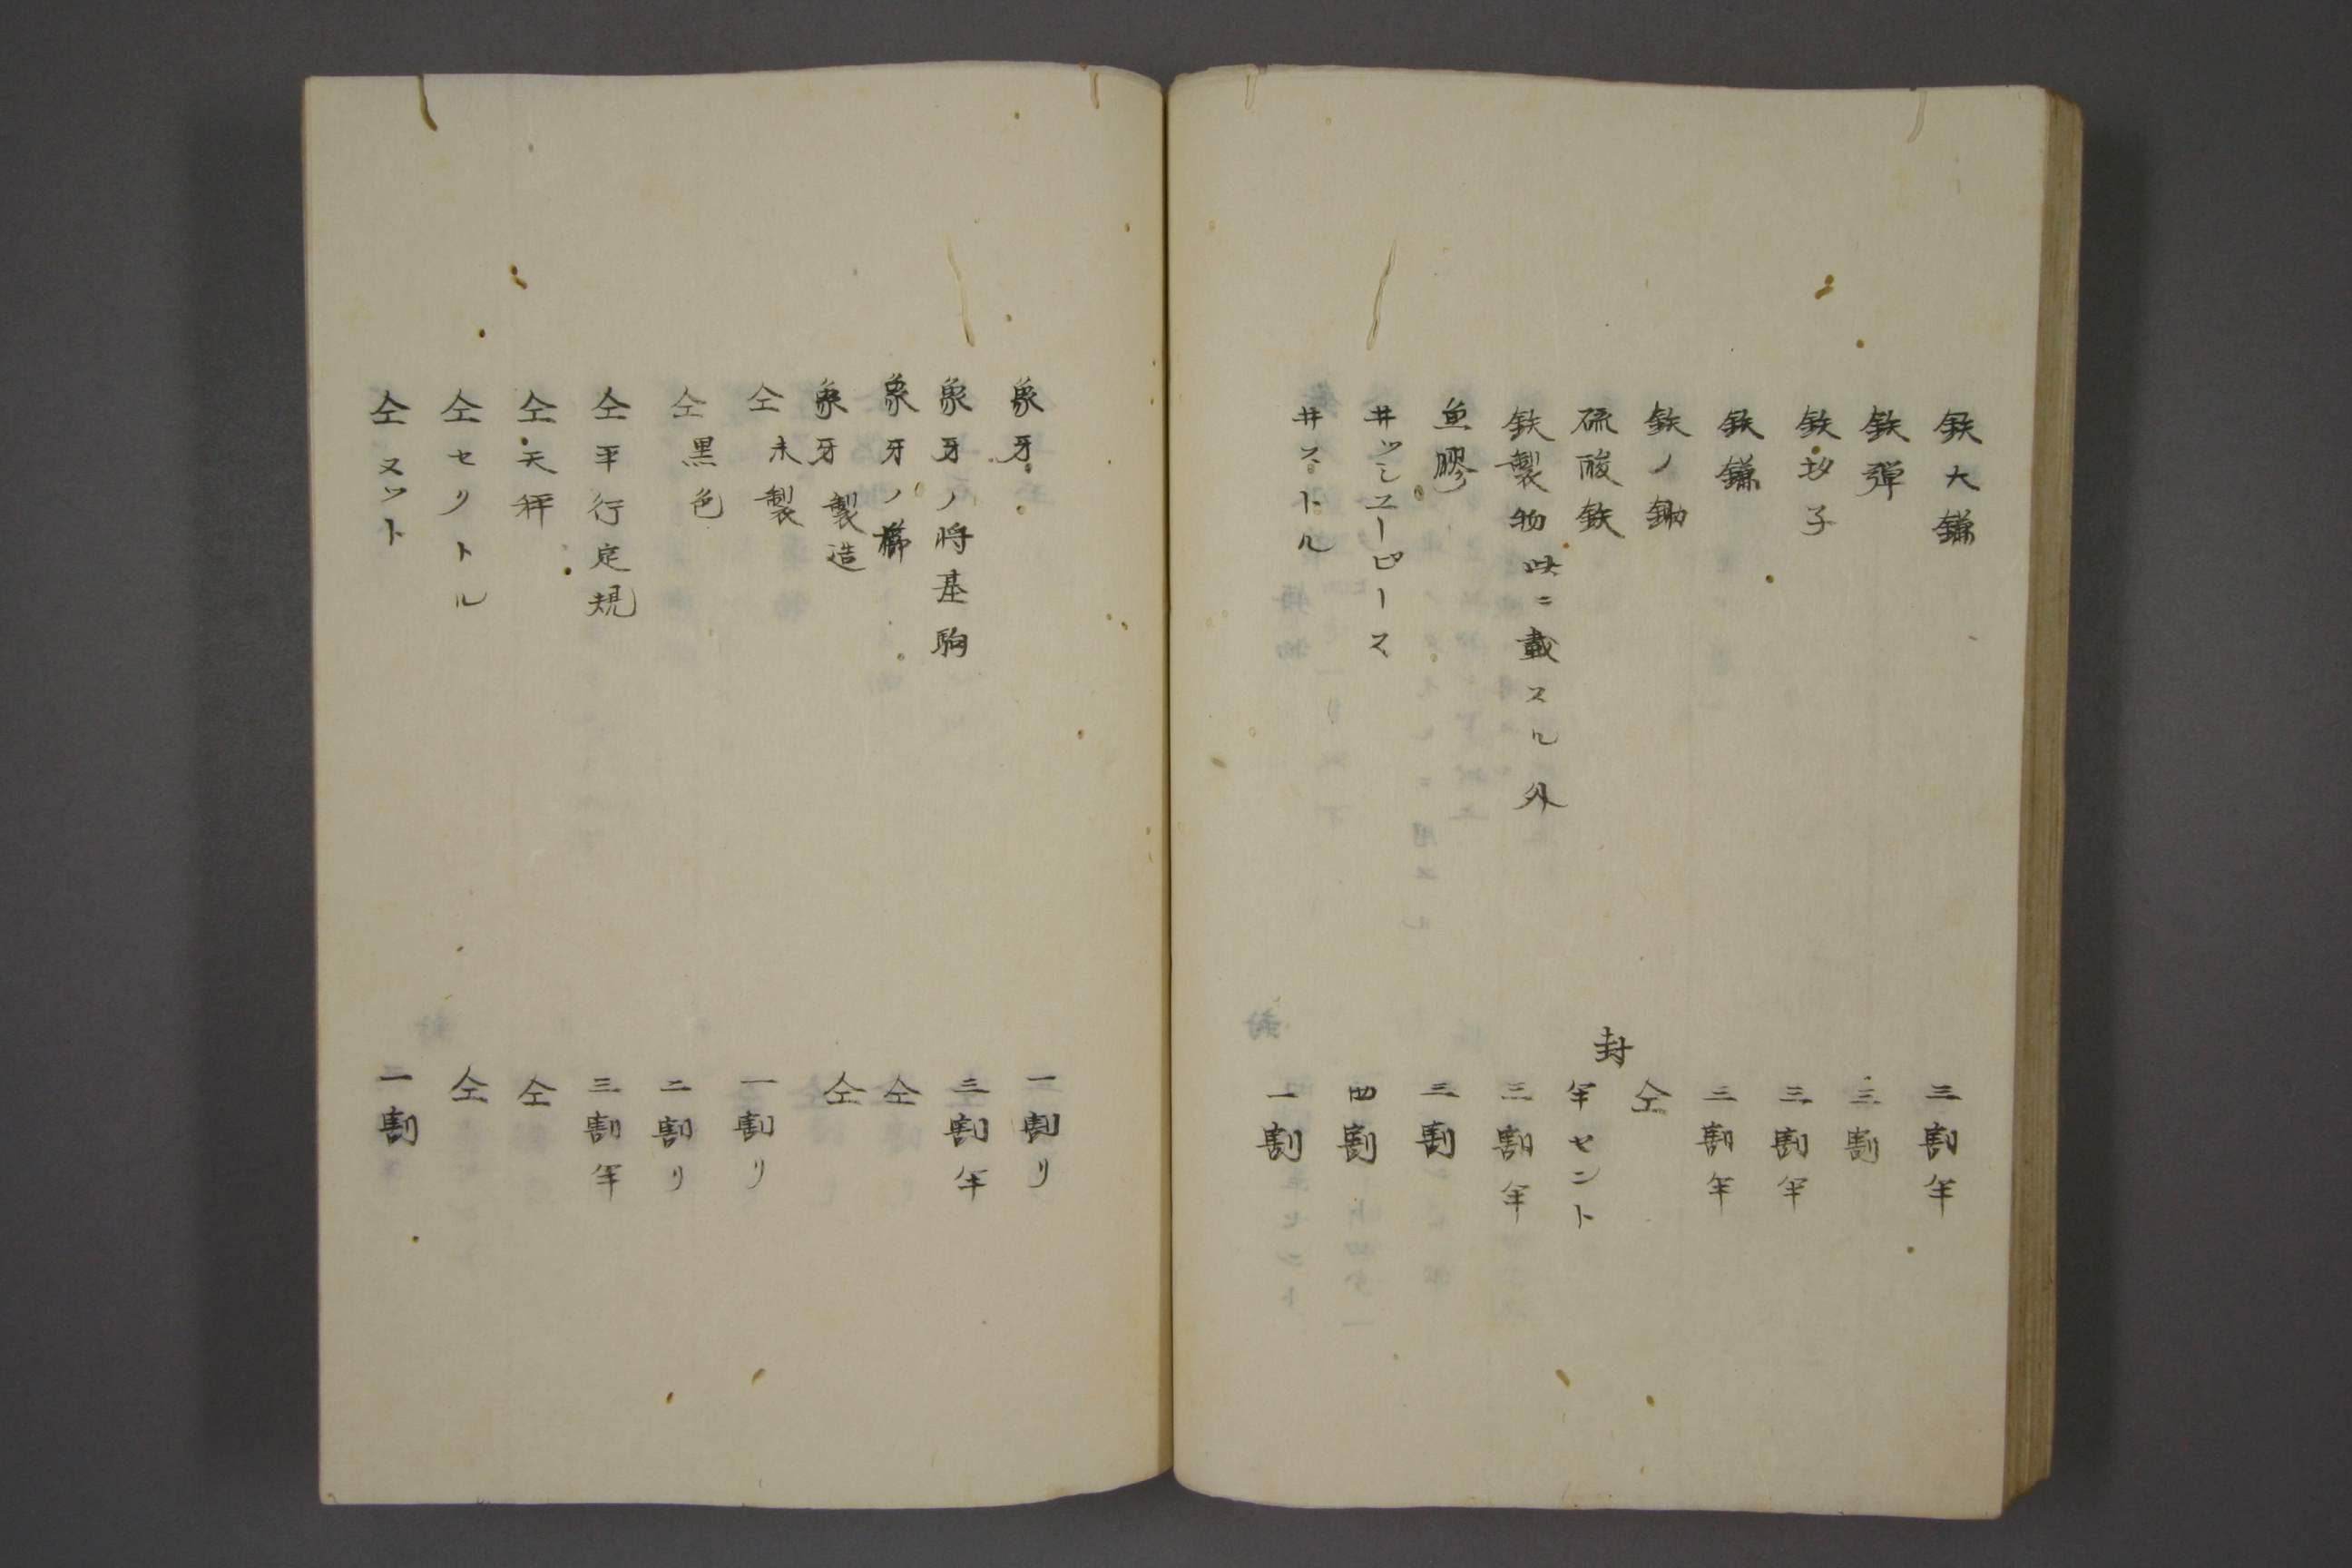 鉄大鎌 三割半
鉄彈 三割
鉄抄子 三割半
鉄鎌 三割半
鉄ノ鋤 仝
硫酸鉄 封 半セント
鉄製物此ニ載スル外 三割半
魚膠 三割
井ツシユーピース 四割
井ストル 一割
象牙 一割リ
象牙ノ将基駒 三割半
象牙ノ櫛 仝
象牙製造 仝
仝未製 一割リ
仝黒色 二割リ
仝平行定規 三割半
仝天秤 仝
仝セリトル 仝
仝ヌツト 一割